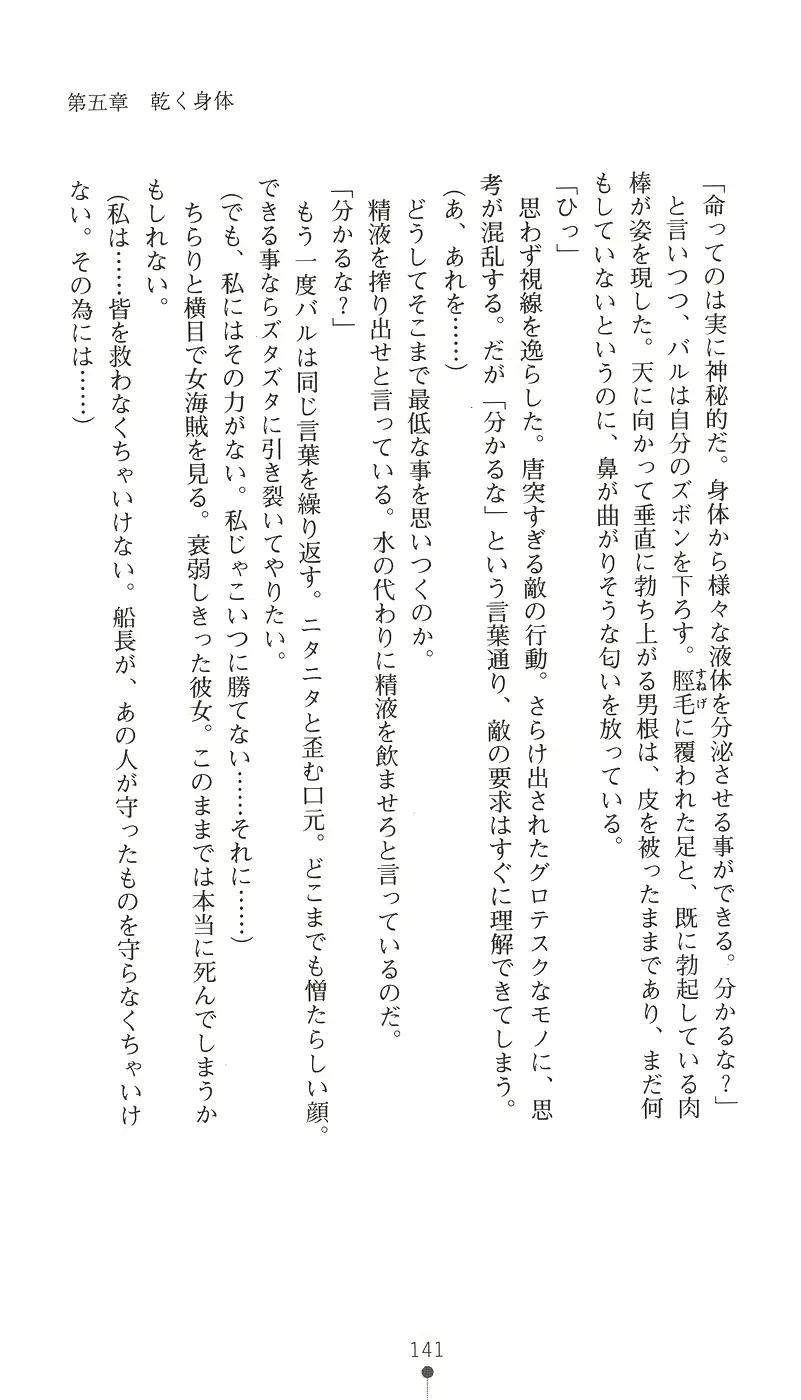 第五章　乾く身体
「命ってのは実に神秘的だ。身体から様々な液体を分泌させる事ができる。分かるな？」
と言いつつ、バルは自分のズボンを下ろす。脛毛に覆われた足と、既に勃起している肉
すねげ
棒が姿を現した。天に向かって垂直に勃ち上がる男根は、皮を被ったままであり、まだ何
もしていないというのに、鼻が曲がりそうな匂いを放っている。
「ひっ」
思わず視線を逸らした。唐突すぎる敵の行動。さらけ出されたグロテスクなモノに、思
考が混乱する。だが「分かるな」という言葉通り、敵の要求はすぐに理解できてしまう。
（あ、あれを……）
どうしてそこまで最低な事を思いつくのか。
精液を搾り出せと言っている。水の代わりに精液を飲ませろと言っているのだ。
「分かるな？」
もう一度バルは同じ言葉を繰り返す。ニタニタと歪む口元。どこまでも憎たらしい顔。
できる事ならズタズタに引き裂いてやりたい。
（でも、私にはその力がない。私じゃこいつに勝てない……それに……）
ちらりと横目で女海賊を見る。衰弱しきった彼女。このままでは本当に死んでしまうか
もしれない。
（私は……皆を救わなくちゃいけない。船長が、あの人が守ったものを守らなくちゃいけ
ない。その為には……）
141